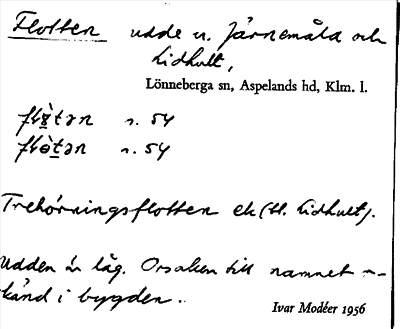 Flotten udde u. Järnemåla och
Lidhult,
Lönneberga sn, Aspelands hd, Klm. l.
s. 54
s. 54
Trehörningsflotten ek (t. Lidhult).
Udden är låg. Orsaken till namnet o-
känd i bygden.
Ivar Modéer 1956